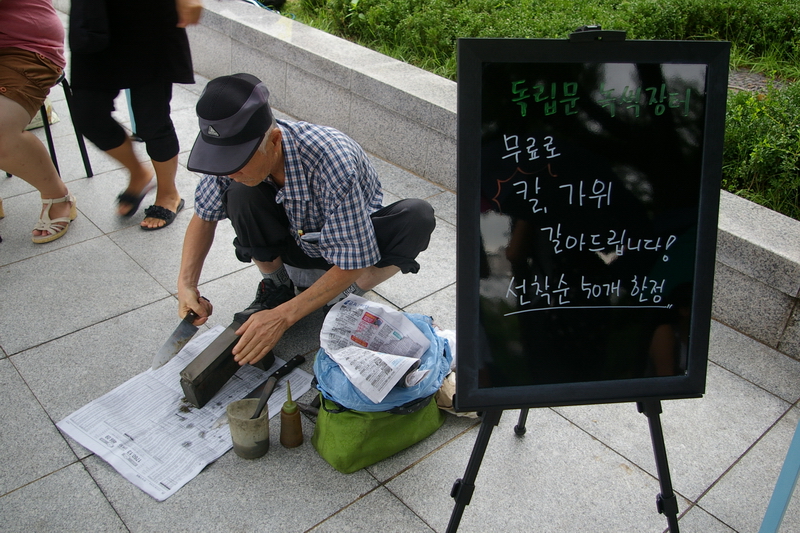 독립문 녹색장터
무료로
칼, 가위
갈아드립니다!
선착순 50개 한정